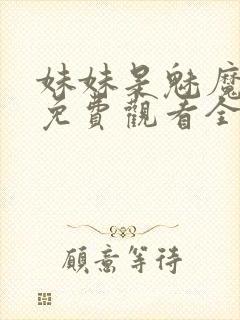 妹妹是魅魔
免費觀看全
願意等待